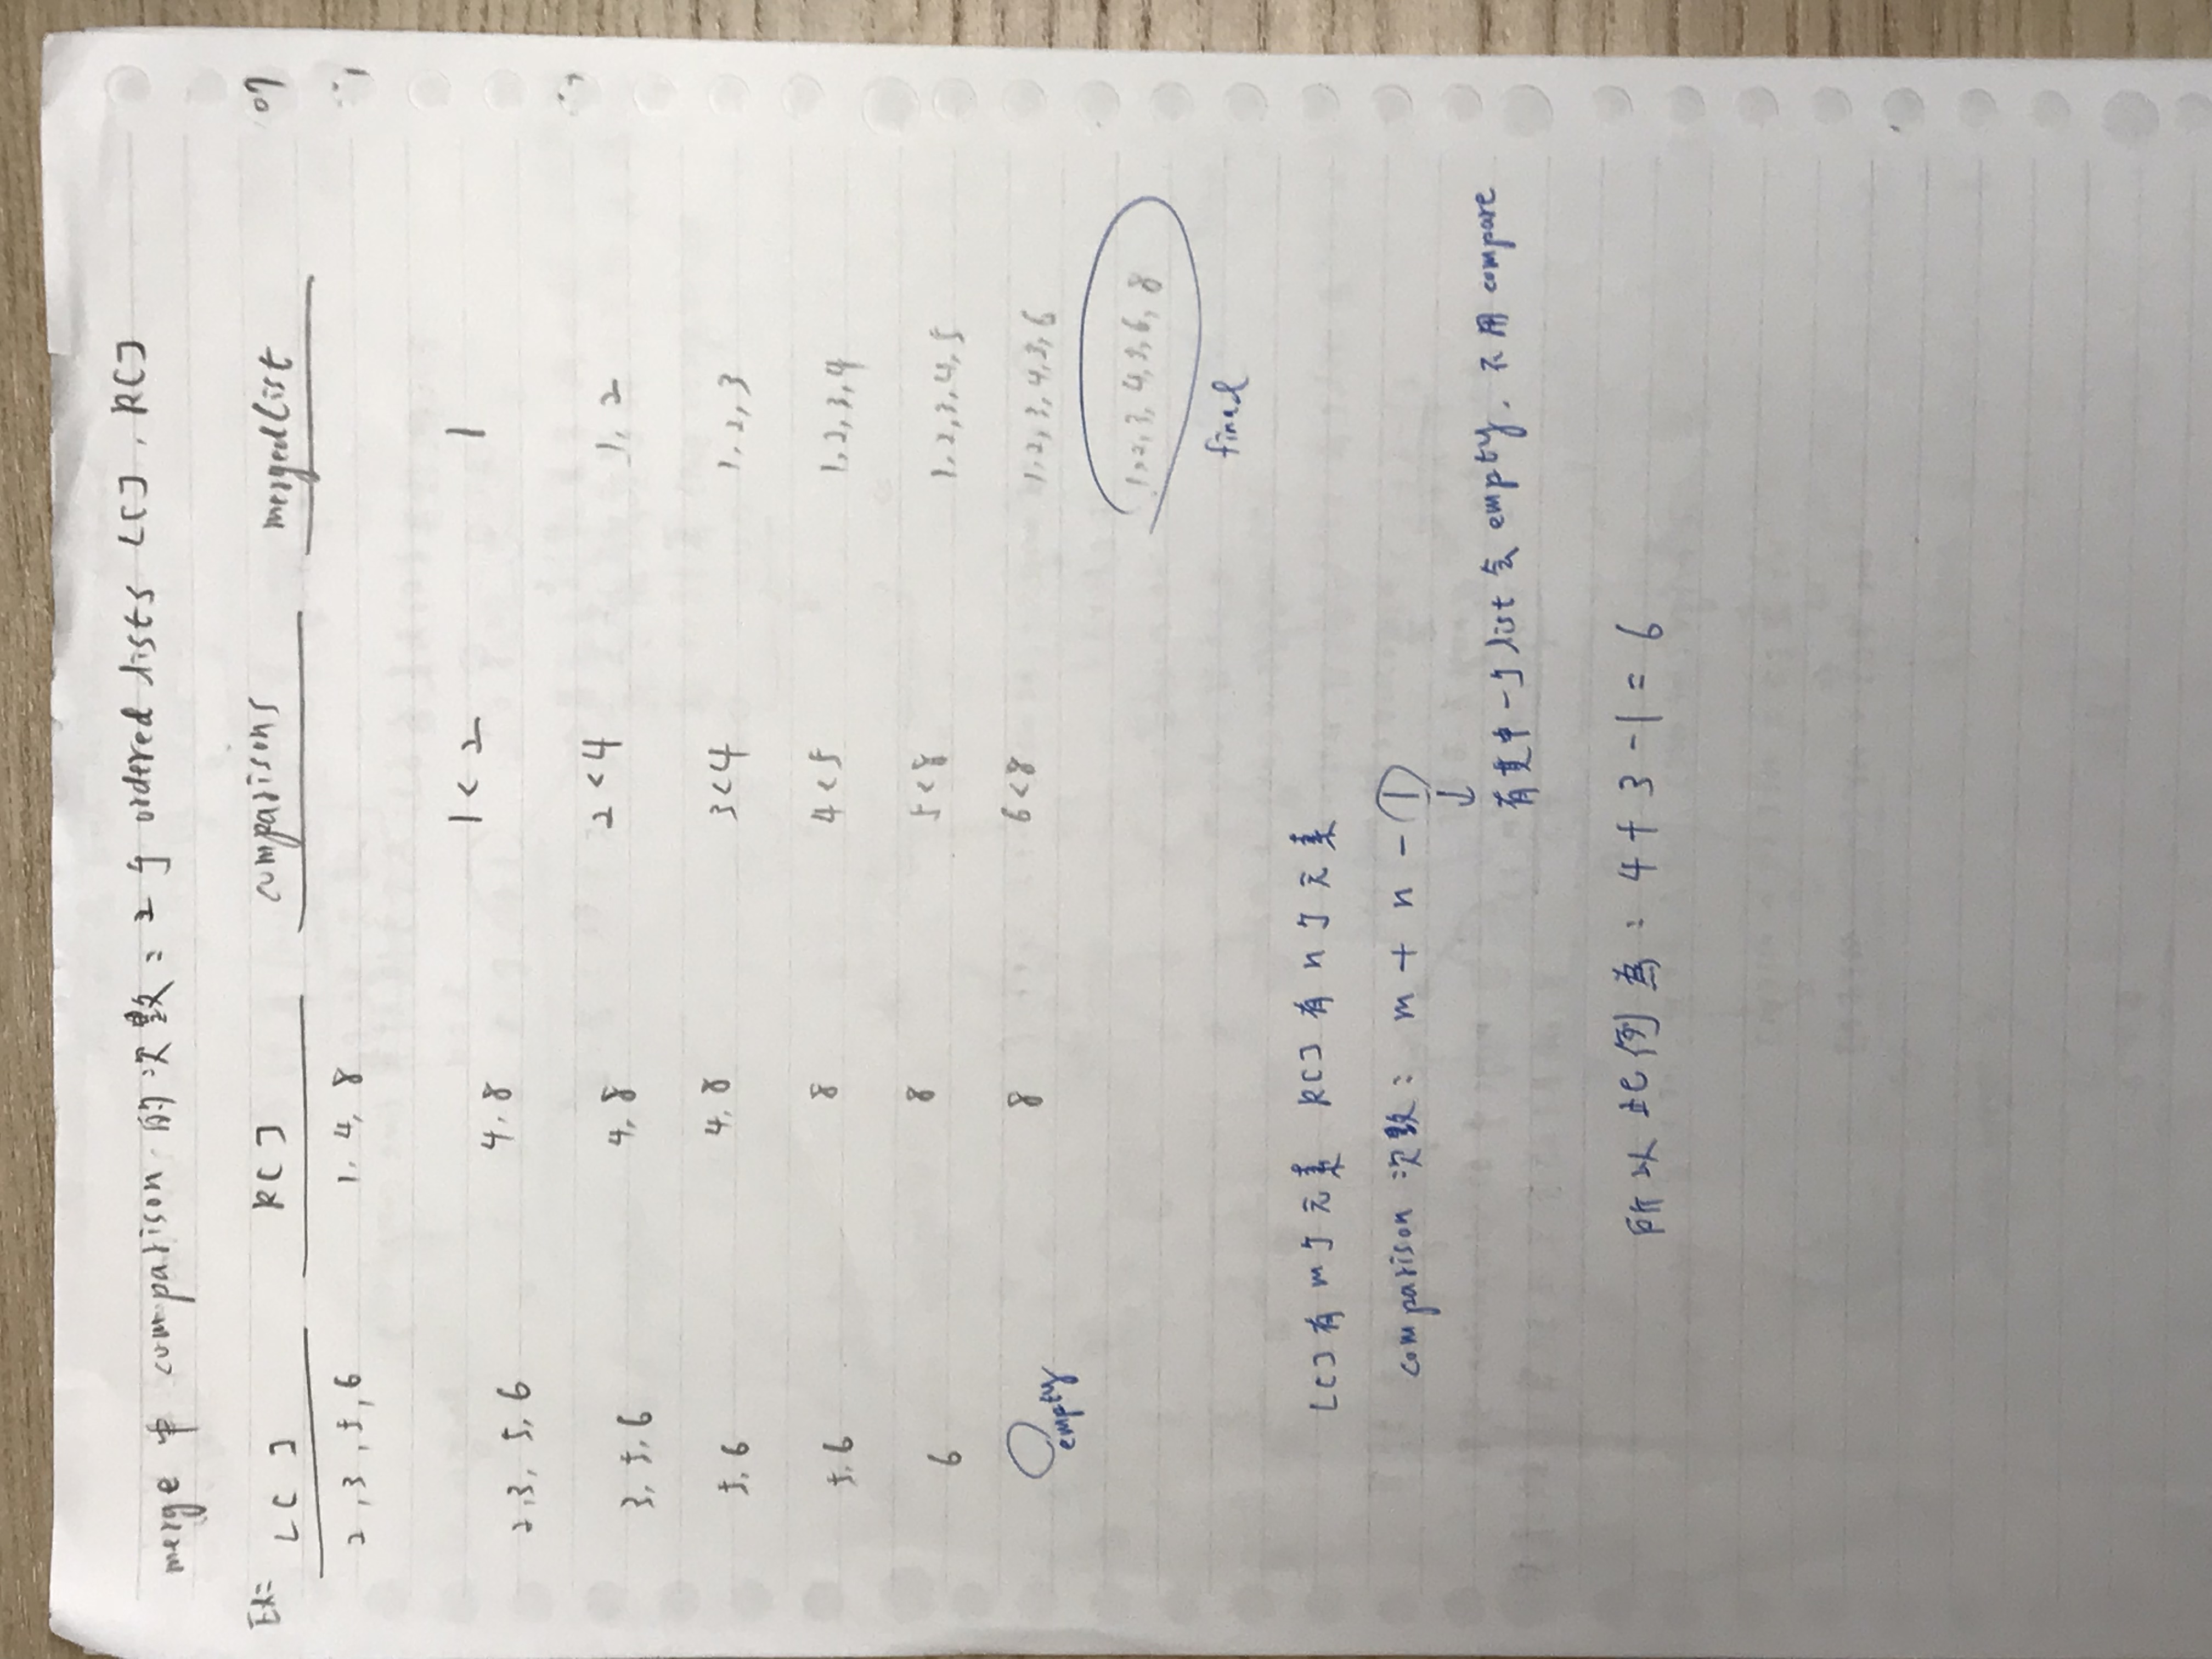 merge 中 comparison 的次數：2 个 ordered lists L[], R[]
Ex: L[ ] R[ ] comparisons merged list
2, 3, 5, 6 1, 4, 8
2, 3, 5, 6 4, 8 1 < 2 1
3, 5, 6 4, 8 2 < 4 1, 2
5, 6 4, 8 3 < 4 1, 2, 3
5, 6 8 4 < 5 1, 2, 3, 4
6 8 5 < 8 1, 2, 3, 4, 5
empty 8 6 < 8 1, 2, 3, 4, 5, 6
1, 2, 3, 4, 5, 6, 8
final
L[]有 m 个元素 R[]有 n 个元素
comparison 次數： m + n - 1
↓
有其中一个 list 会 empty, 不用 compare
所以此例為：4 + 3 - 1 = 6